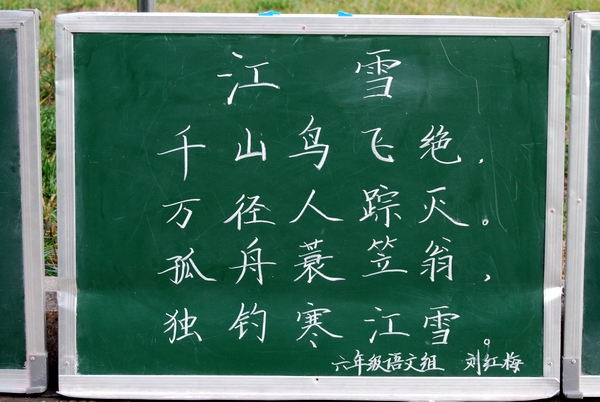 江 雪
千山鸟飞绝,
万径人踪灭。
孤舟蓑笠翁,
独钓寒江雪。
六年级语文组 刘红梅